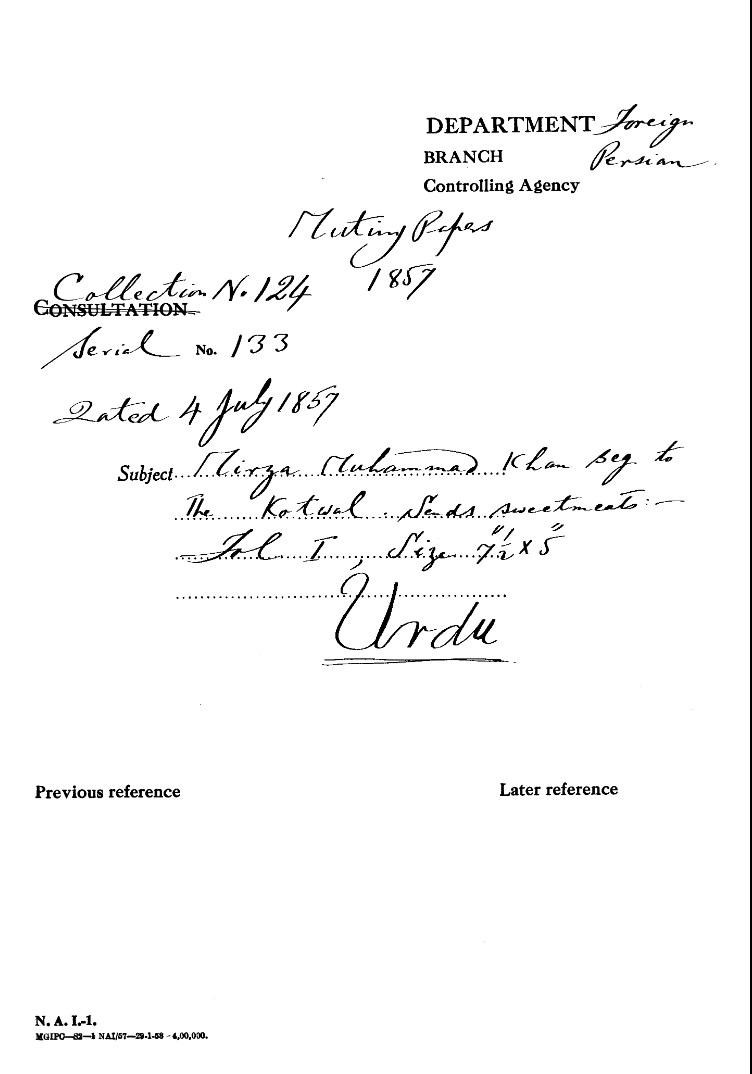 DEPARTMENT Foreign
BRANCH Persian
Controlling Agency
Mutiny Papers
1857
Collection No. 124
CONSULTATION
Serial No. 133
Dated 4 July 1857
Subject Mirza Muhammad Khan Beg to
The Kotwal. Sends sweetmeats:—
Fol I, Size 7½" x 5"
Urdu
Previous reference
Later reference
N. A. I.-1.
MGIPC—S2—1 NAI/57—29-1-58 - 4,00,000.